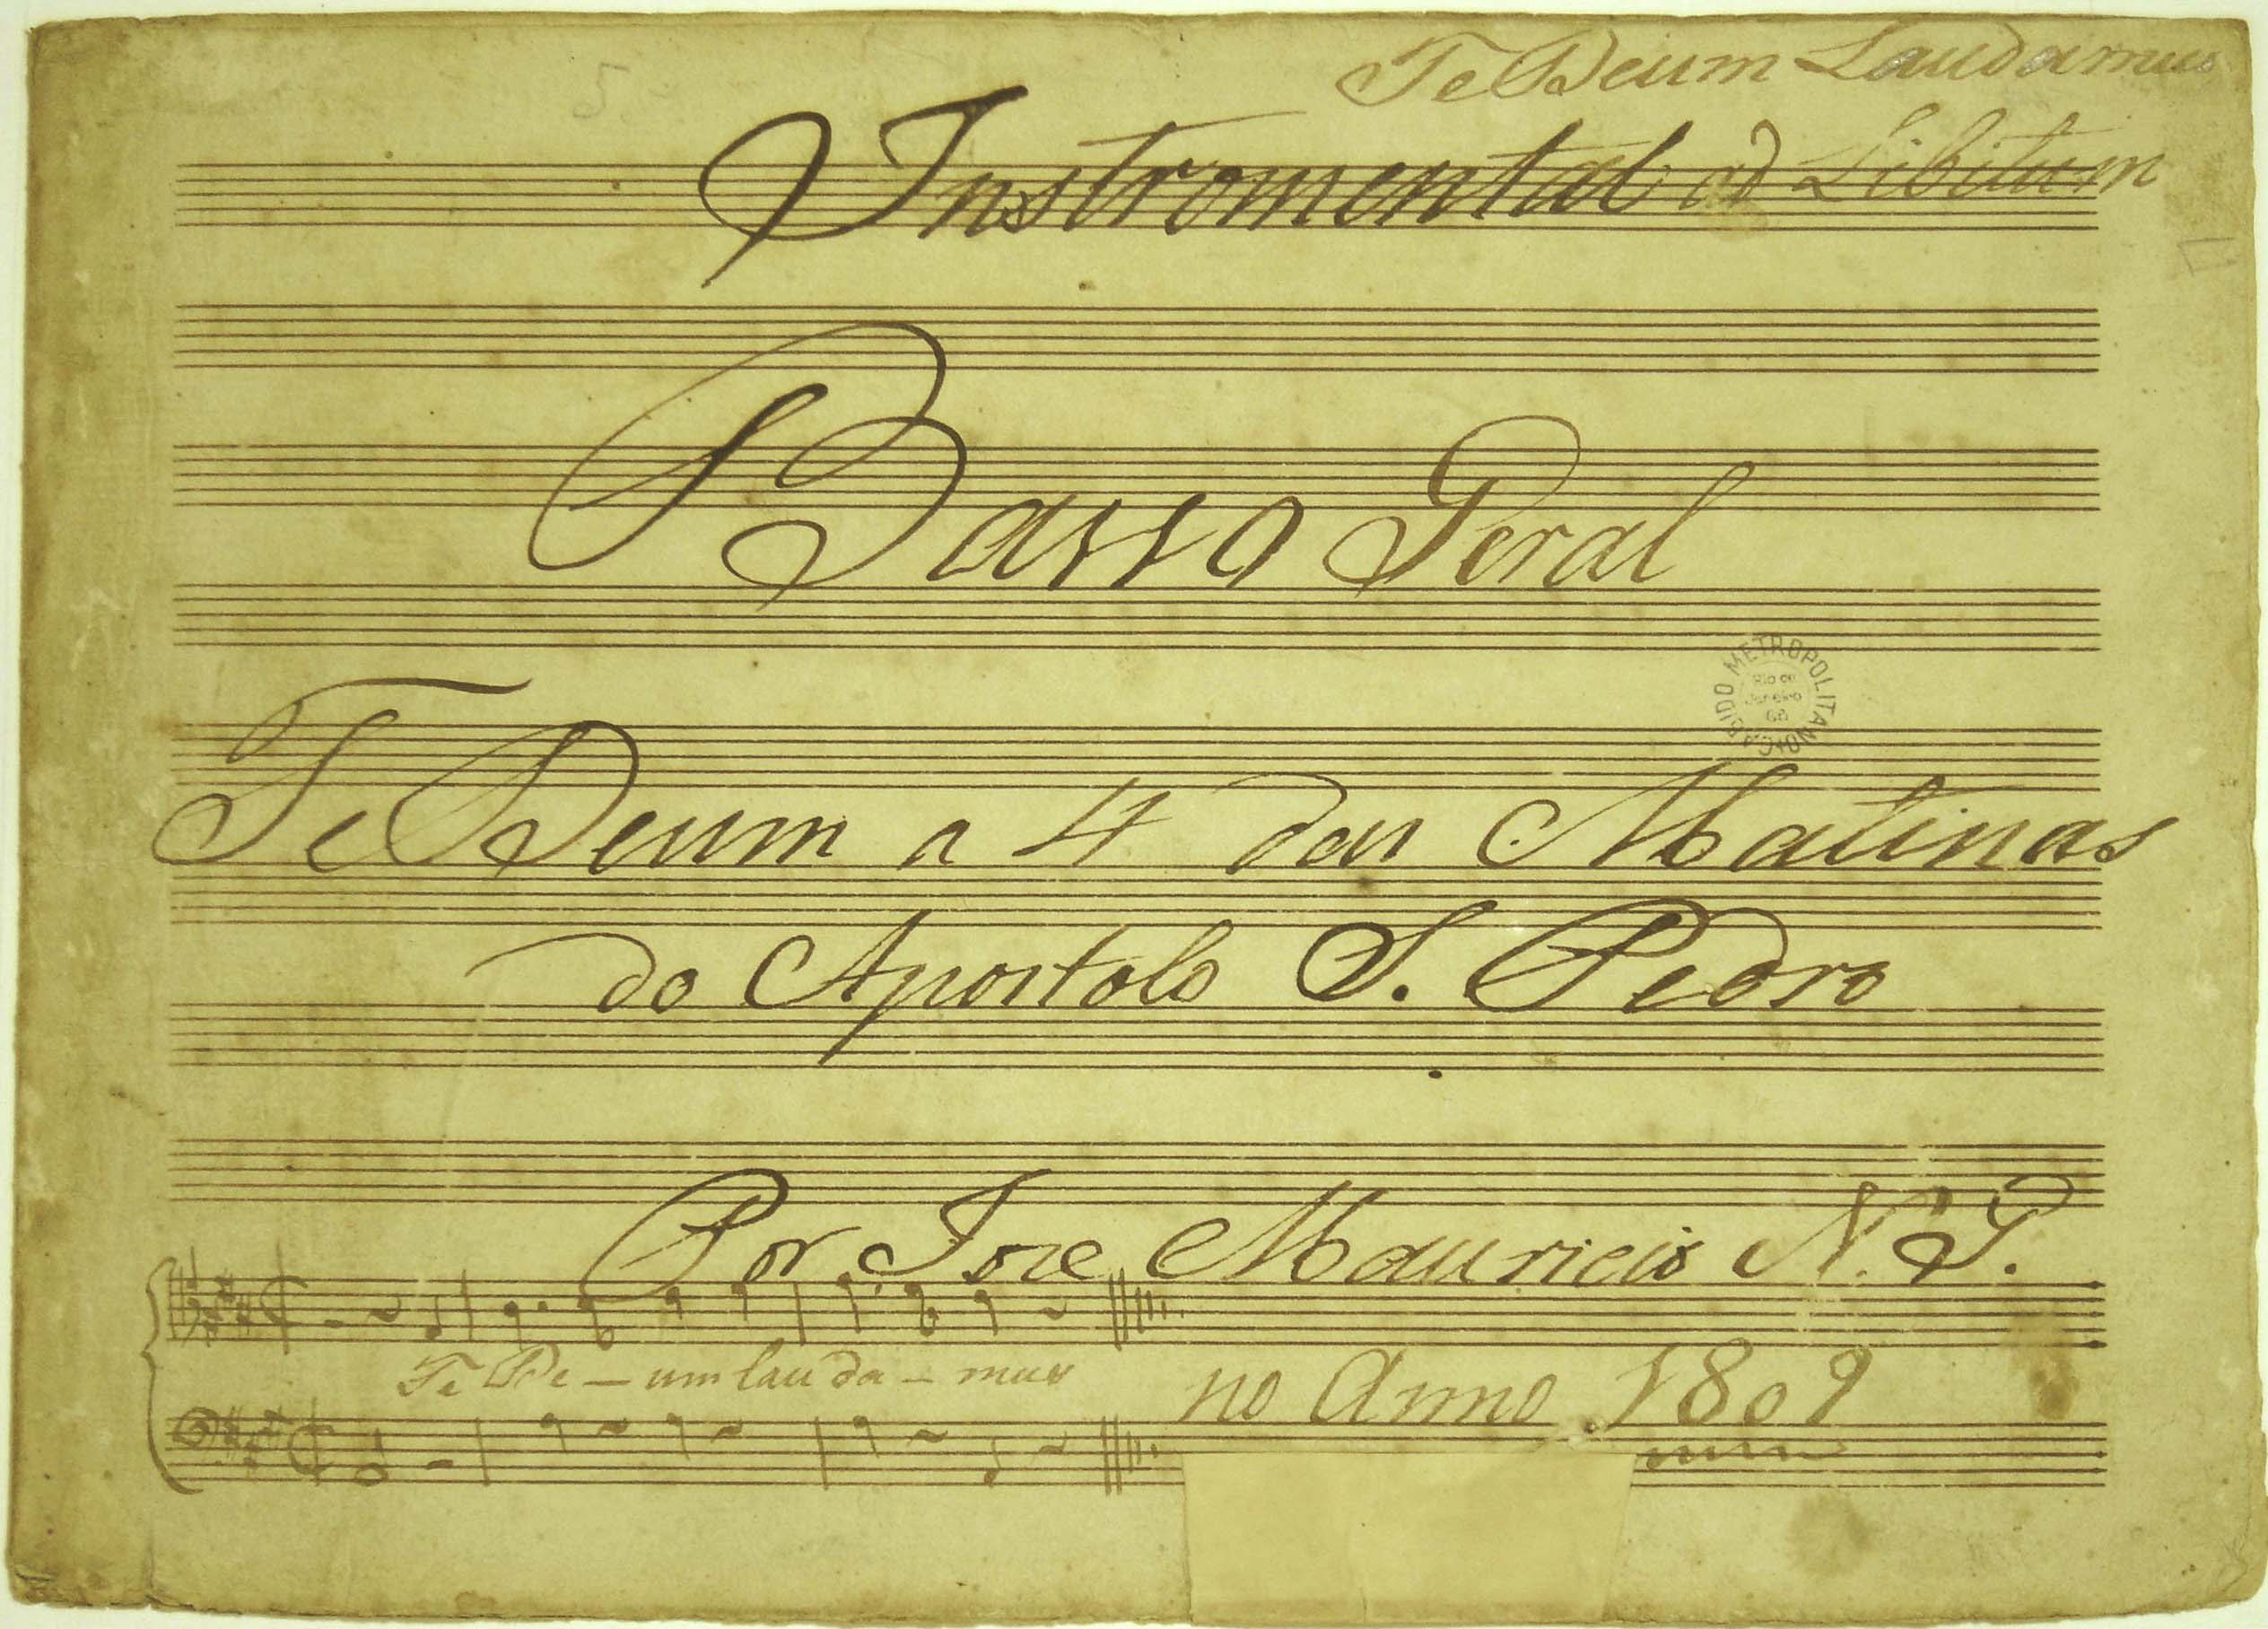 5
Te Deum Laudamus
Instromental ad Libitum
Basso Geral
METROPOLITANO + CABIDO
Rio de
Janeiro
GB
Te Deum a 4 das Matinas
do Apostolo S. Pedro
Por Joze Mauricio N. G.
Te De - um lau da - mus
no Anno 1809